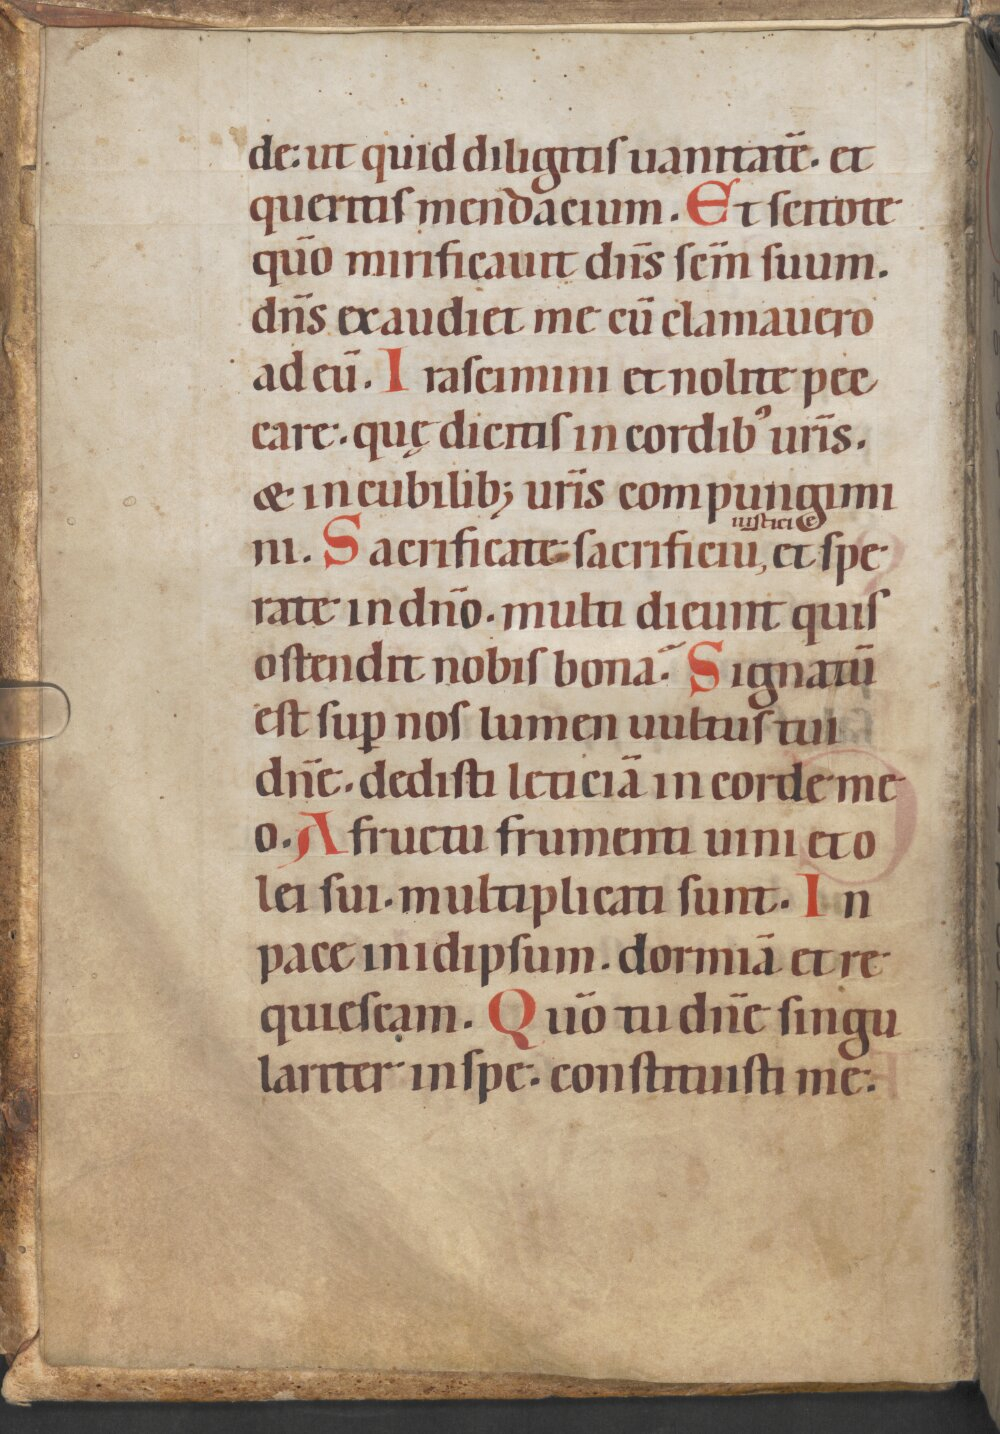 de: ut quid diligitis uanitatē. et
queritis mendacium. Et scitote
qūo mirificauit dn̄s scm̄ suum.
dn̄s exaudiet me cū clamauero
ad eū. Irascimini et nolite pec
care. quę dicitis in cordibꝰ ur̄is.
& in cubilib; ur̄is compungimi
iusticie
ni. Sacrificate sacrificiū, et spe
rate in dn̄o. multi dicunt quis
ostendit nobis bona. Signatū
est suꝑ nos lumen uultus tui
dn̄e. dedisti leticiā in corde me
o. A fructu frumenti uini et o
lei sui. multiplicati sunt. In
pace in idipsum. dormiā et re
quiescam. Qūo tu dn̄e singu
lariter in spe. constituisti me.